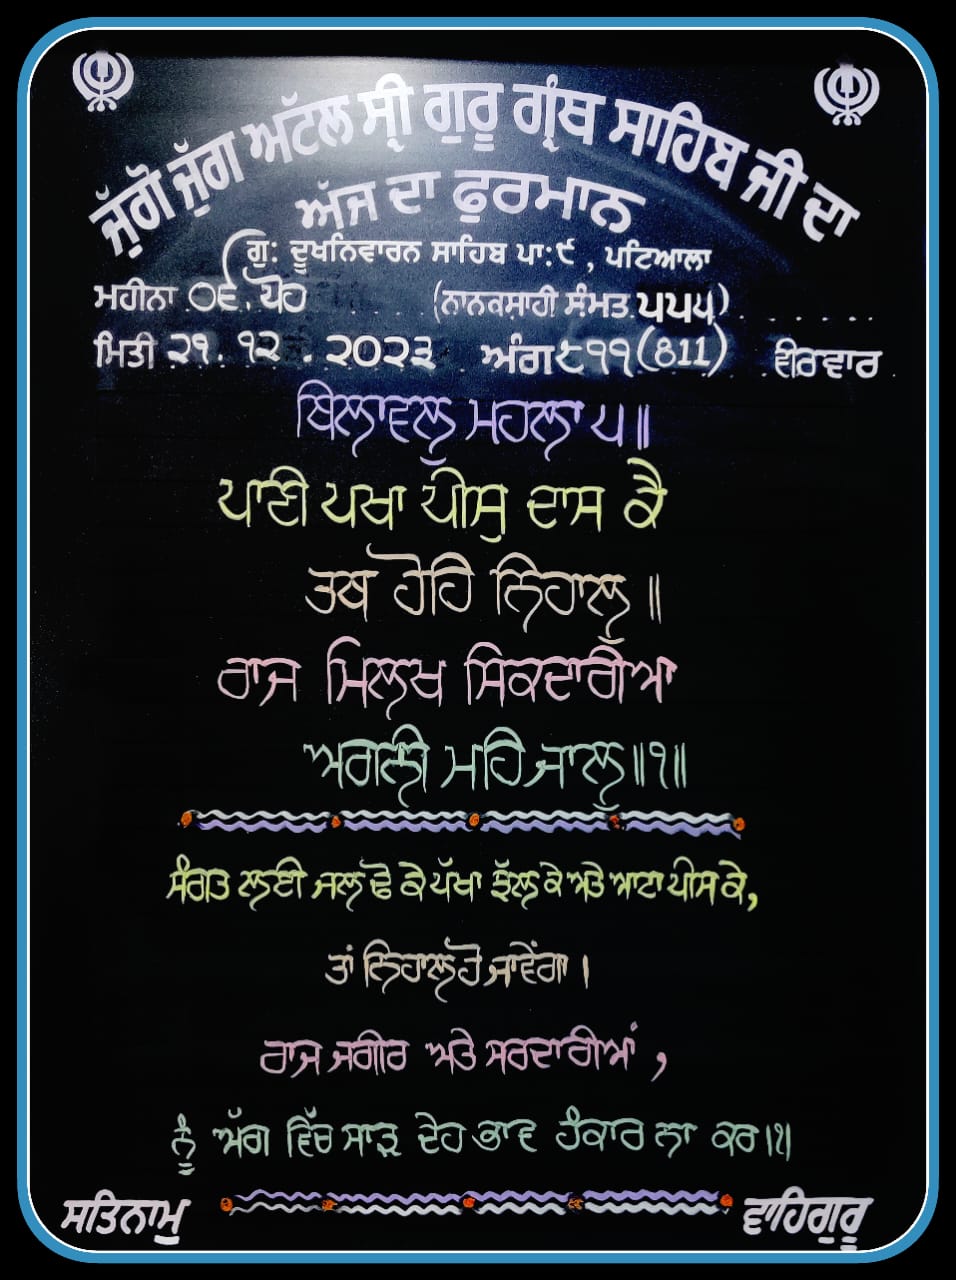 ਜੁੱਗੋ ਜੁੱਗ ਅਟੱਲ ਸ੍ਰੀ ਗੁਰੂ ਗ੍ਰੰਥ ਸਾਹਿਬ ਜੀ ਦਾ
ਅੱਜ ਦਾ ਫੁਰਮਾਨ
ਗੁ: ਦੂਖਨਿਵਾਰਨ ਸਾਹਿਬ ਪਾ:੯, ਪਟਿਆਲਾ
ਮਹੀਨਾ ੦੬. ਪੋਹ (ਨਾਨਕਸ਼ਾਹੀ ਸੰਮਤ ੫੫੫)
ਮਿਤੀ ੨੧.੧੨.੨੦੨੩ ਅੰਗ ੮੧੧ (811) ਵੀਰਵਾਰ
ਬਿਲਾਵਲੁ ਮਹਲਾ ੫॥
ਪਾਣੀ ਪਖਾ ਪੀਸੁ ਦਾਸ ਕੈ
ਤਬ ਹੋਹਿ ਨਿਹਾਲੁ॥
ਰਾਜ ਮਿਲਖ ਸਿਕਦਾਰੀਆ
ਅਗਨੀ ਮਹਿ ਜਾਲੁ॥੧॥
ਸੰਗਤ ਲਈ ਜਲ ਢੋ ਕੇ ਪੱਖਾ ਝੱਲ ਕੇ ਅਤੇ ਆਟਾ ਪੀਸ ਕੇ,
ਤਾਂ ਨਿਹਾਲ ਹੋ ਜਾਵੇਂਗਾ।
ਰਾਜ ਜਗੀਰ ਅਤੇ ਸਰਦਾਰੀਆਂ,
ਨੂੰ ਅੱਗ ਵਿੱਚ ਸਾੜ ਦੇਹ ਭਾਵ ਹੰਕਾਰ ਨਾ ਕਰ।੧।
ਸਤਿਨਾਮੁ ਵਾਹਿਗੁਰੂ